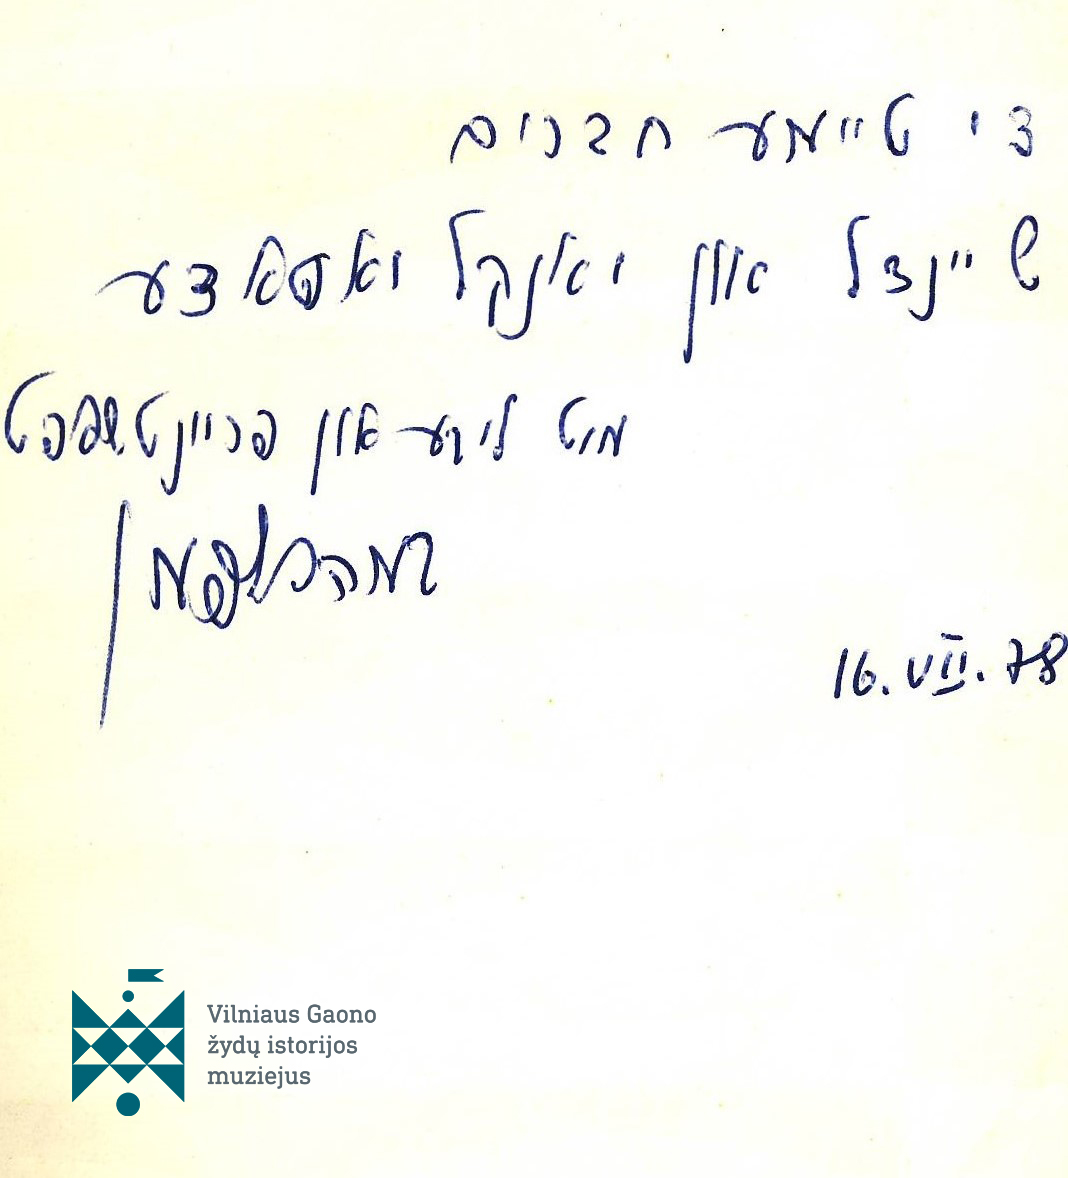 די טייערע חברים
שיינדל און יאנקל יאסאדע
מיט ליבע און פריינטשאפט
16.VII.78
Vilniaus Gaono
žydų istorijos
muziejus